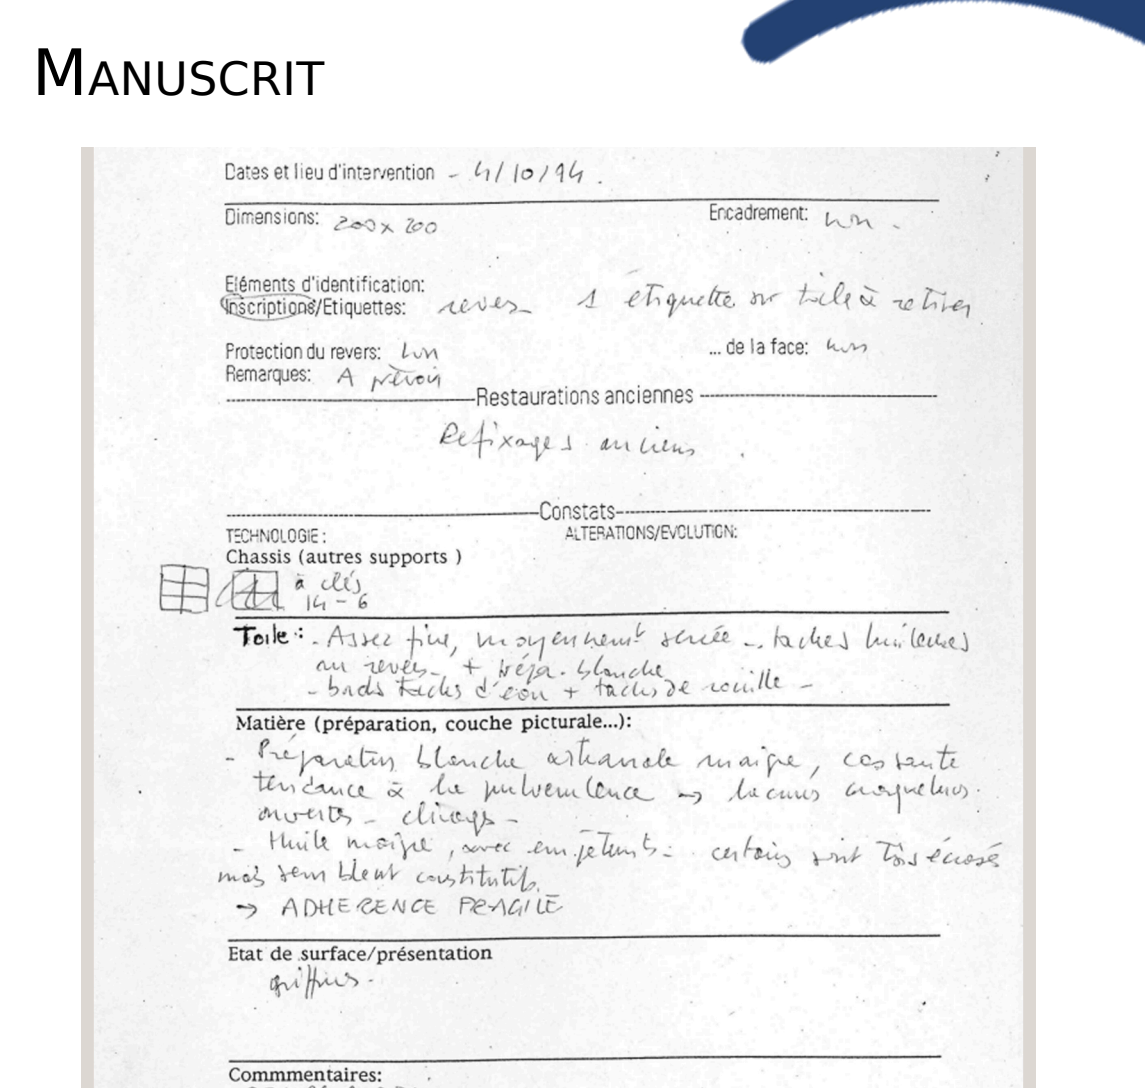 MANUSCRIT
Dates et lieu d'intervention - 4/10/94.
Dimensions: 200 x 200 Encadrement: non.
Eléments d'identification:
Inscriptions/Etiquettes: revers 1 étiquette sur toile à retirer
Protection du revers: non ... de la face: non
Remarques: A prévoir
Restaurations anciennes
Refixages anciens.
Constats
TECHNOLOGIE: ALTERATIONS/EVOLUTION:
Chassis (autres supports )
à clés
14 - 6
Toile: - Assez fine, moyennement serrée - taches huileuses
au revers - + prépa. blanche
- bords tachés d'eau + taches de rouille -
Matière (préparation, couche picturale...):
- Préparation blanche artisanale maigre, cassante
tendance à la pulvérulence → lacunes craquelures
ouvertes - clivages -
- Huile maigre, avec empâtements - certains sont très écrasés
mais semblent constitutifs.
→ ADHERENCE FRAGILE
Etat de surface/présentation
griffures.
Commmentaires: